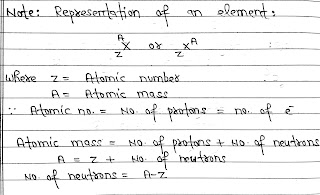 Note: Representation of an element:
ᴬ
Z X or Z Xᴬ
Where Z = Atomic number
A = Atomic mass
∵ Atomic no. = No. of protons = no. of e⁻
Atomic mass = No. of protons + No. of neutrons
A = Z + No. of neutrons
No. of neutrons = A-Z